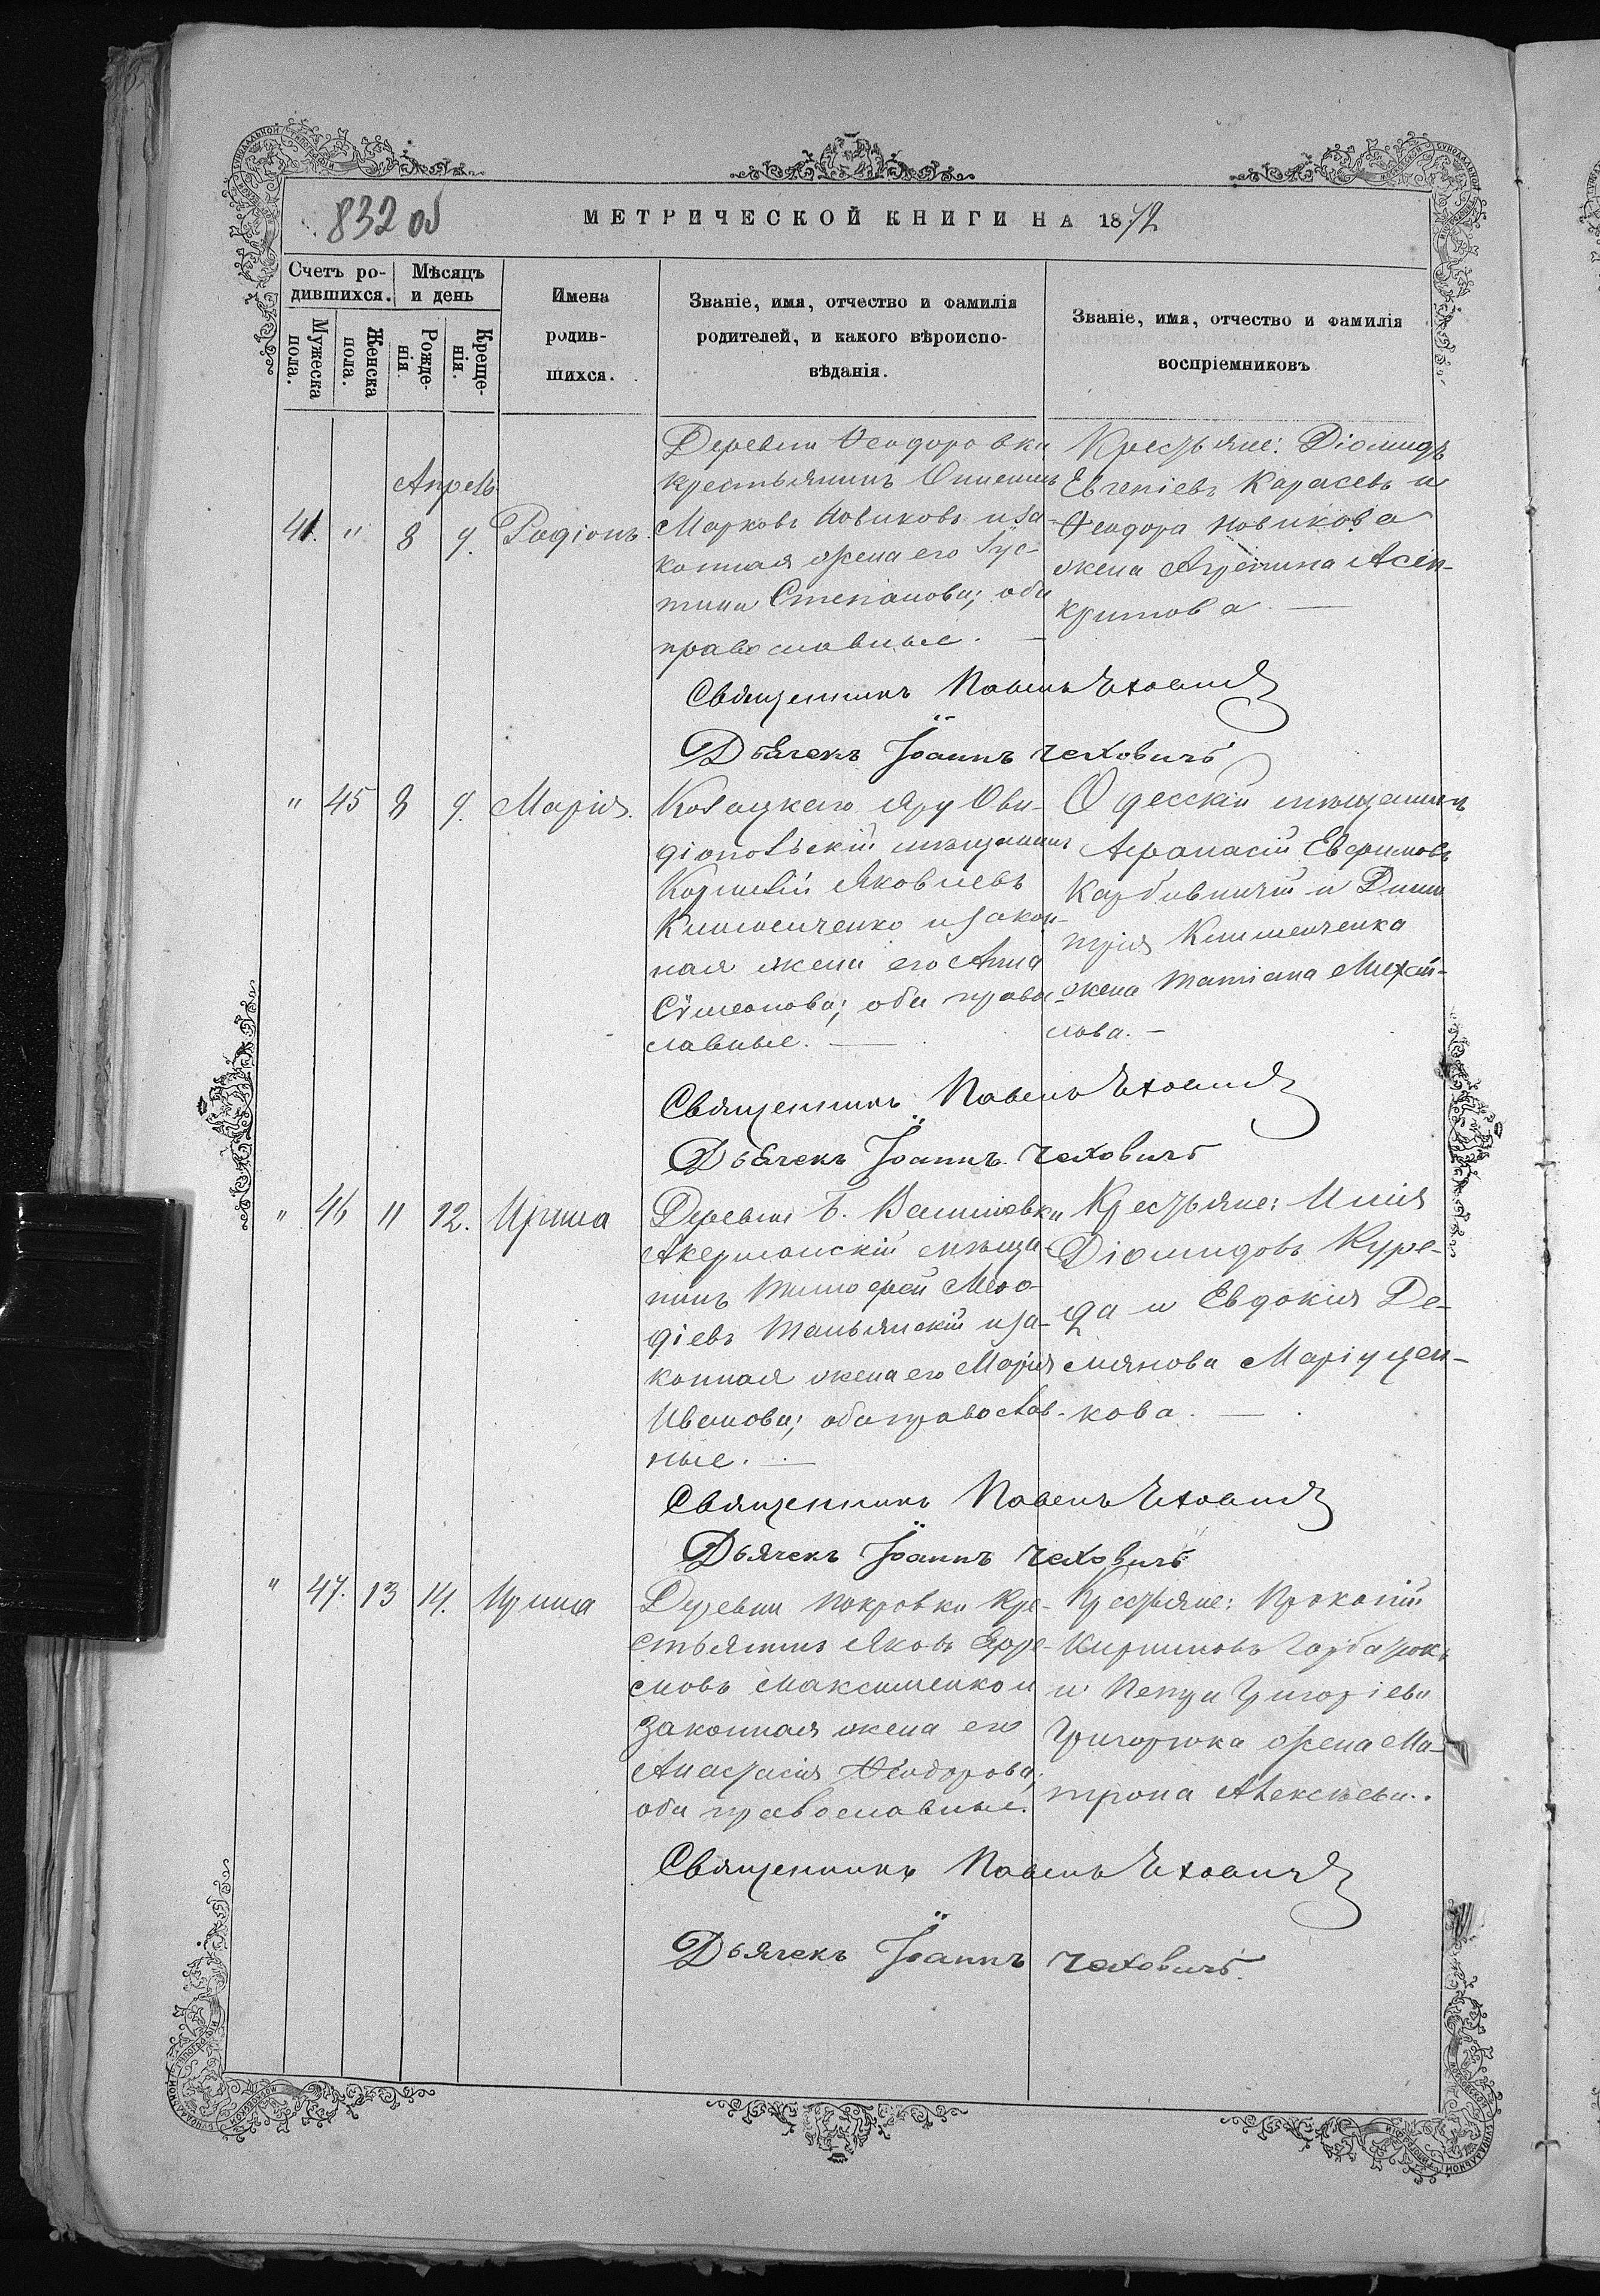 832 об
МЕТРИЧЕСКОЙ КНИГИ НА 1872
Счетъ ро-
дившихся.
Мѣсяцъ
и день
Мужеска
пола.
Женска
пола.
Рожде-
нія
Креще-
нія.
Имена
родив-
шихся.
Званіе, имя, отчество и фамилія
родителей, и какого вѣроиспо-
вѣданія.
Званіе, имя, отчество и фамилія
воспріемниковъ
Апрель
41. " 8 9. Родіонъ.
Деревни Ѳеодоровки
крестьянинъ
Марковъ Новиковъ и за-
конная жена его Іус-
тина Степанова; оба
православные. —
Крестьяне: Діомидъ
Евгеніевъ Карасевъ и
Ѳеодора Новикова
жена Агрипина Асин-
критова —
Священникъ Павелъ Чеховичъ
Дьячекъ Іоаннъ Чеховичъ
" 45 8 9. Марія.
Козацкаго Яру Ови-
діопольскій мѣщанинъ
Корнилій Яковлевъ
Клименченко и закон-
ная жена его Анна
Сѵмеонова; оба право
славные. —
Одесскій мѣщанинъ
Аѳанасій Евфимовъ
и Дими
трія Клименченка
жена Татіана Михай-
лова. —
Священникъ Павелъ Чеховичъ
Дьячекъ Іоаннъ Чеховичъ
" 46 11 12. Ирина
Деревни Б.
Акерманскій мѣща-
нинъ Тимофей Меѳо-
діевъ и за-
конная жена его Марія
Иванова; оба православ-
ные. —
Крестьяне: Илія
Діомидовъ Куре-
да и Евдокія Де-
міянова Маріуцен-
кова. —
Священникъ Павелъ Чеховичъ
Дьячекъ Іоаннъ Чеховичъ
" 47. 13 14. Ирина
Деревни Покровки кре-
стьянинъ Яковъ Ефре-
мовъ Максименко и
законная жена его
Анастасія Ѳеодорова;
оба православные.
Крестьяне: Прокопій
Кириловъ
и Петра Григоріева
Григорюка жена Ма-
трона Алексѣева.
Священникъ Павелъ Чеховичъ
Дьячекъ Іоаннъ Чеховичъ.